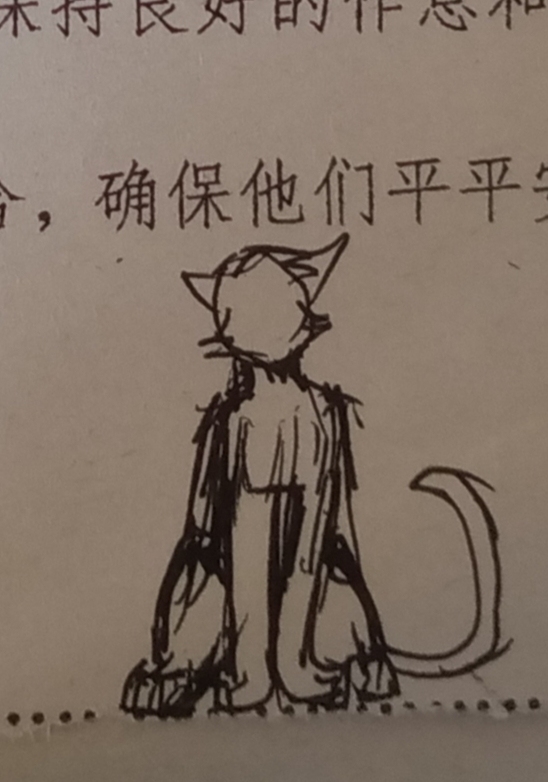 保持良好的作息和
，确保他们平平安